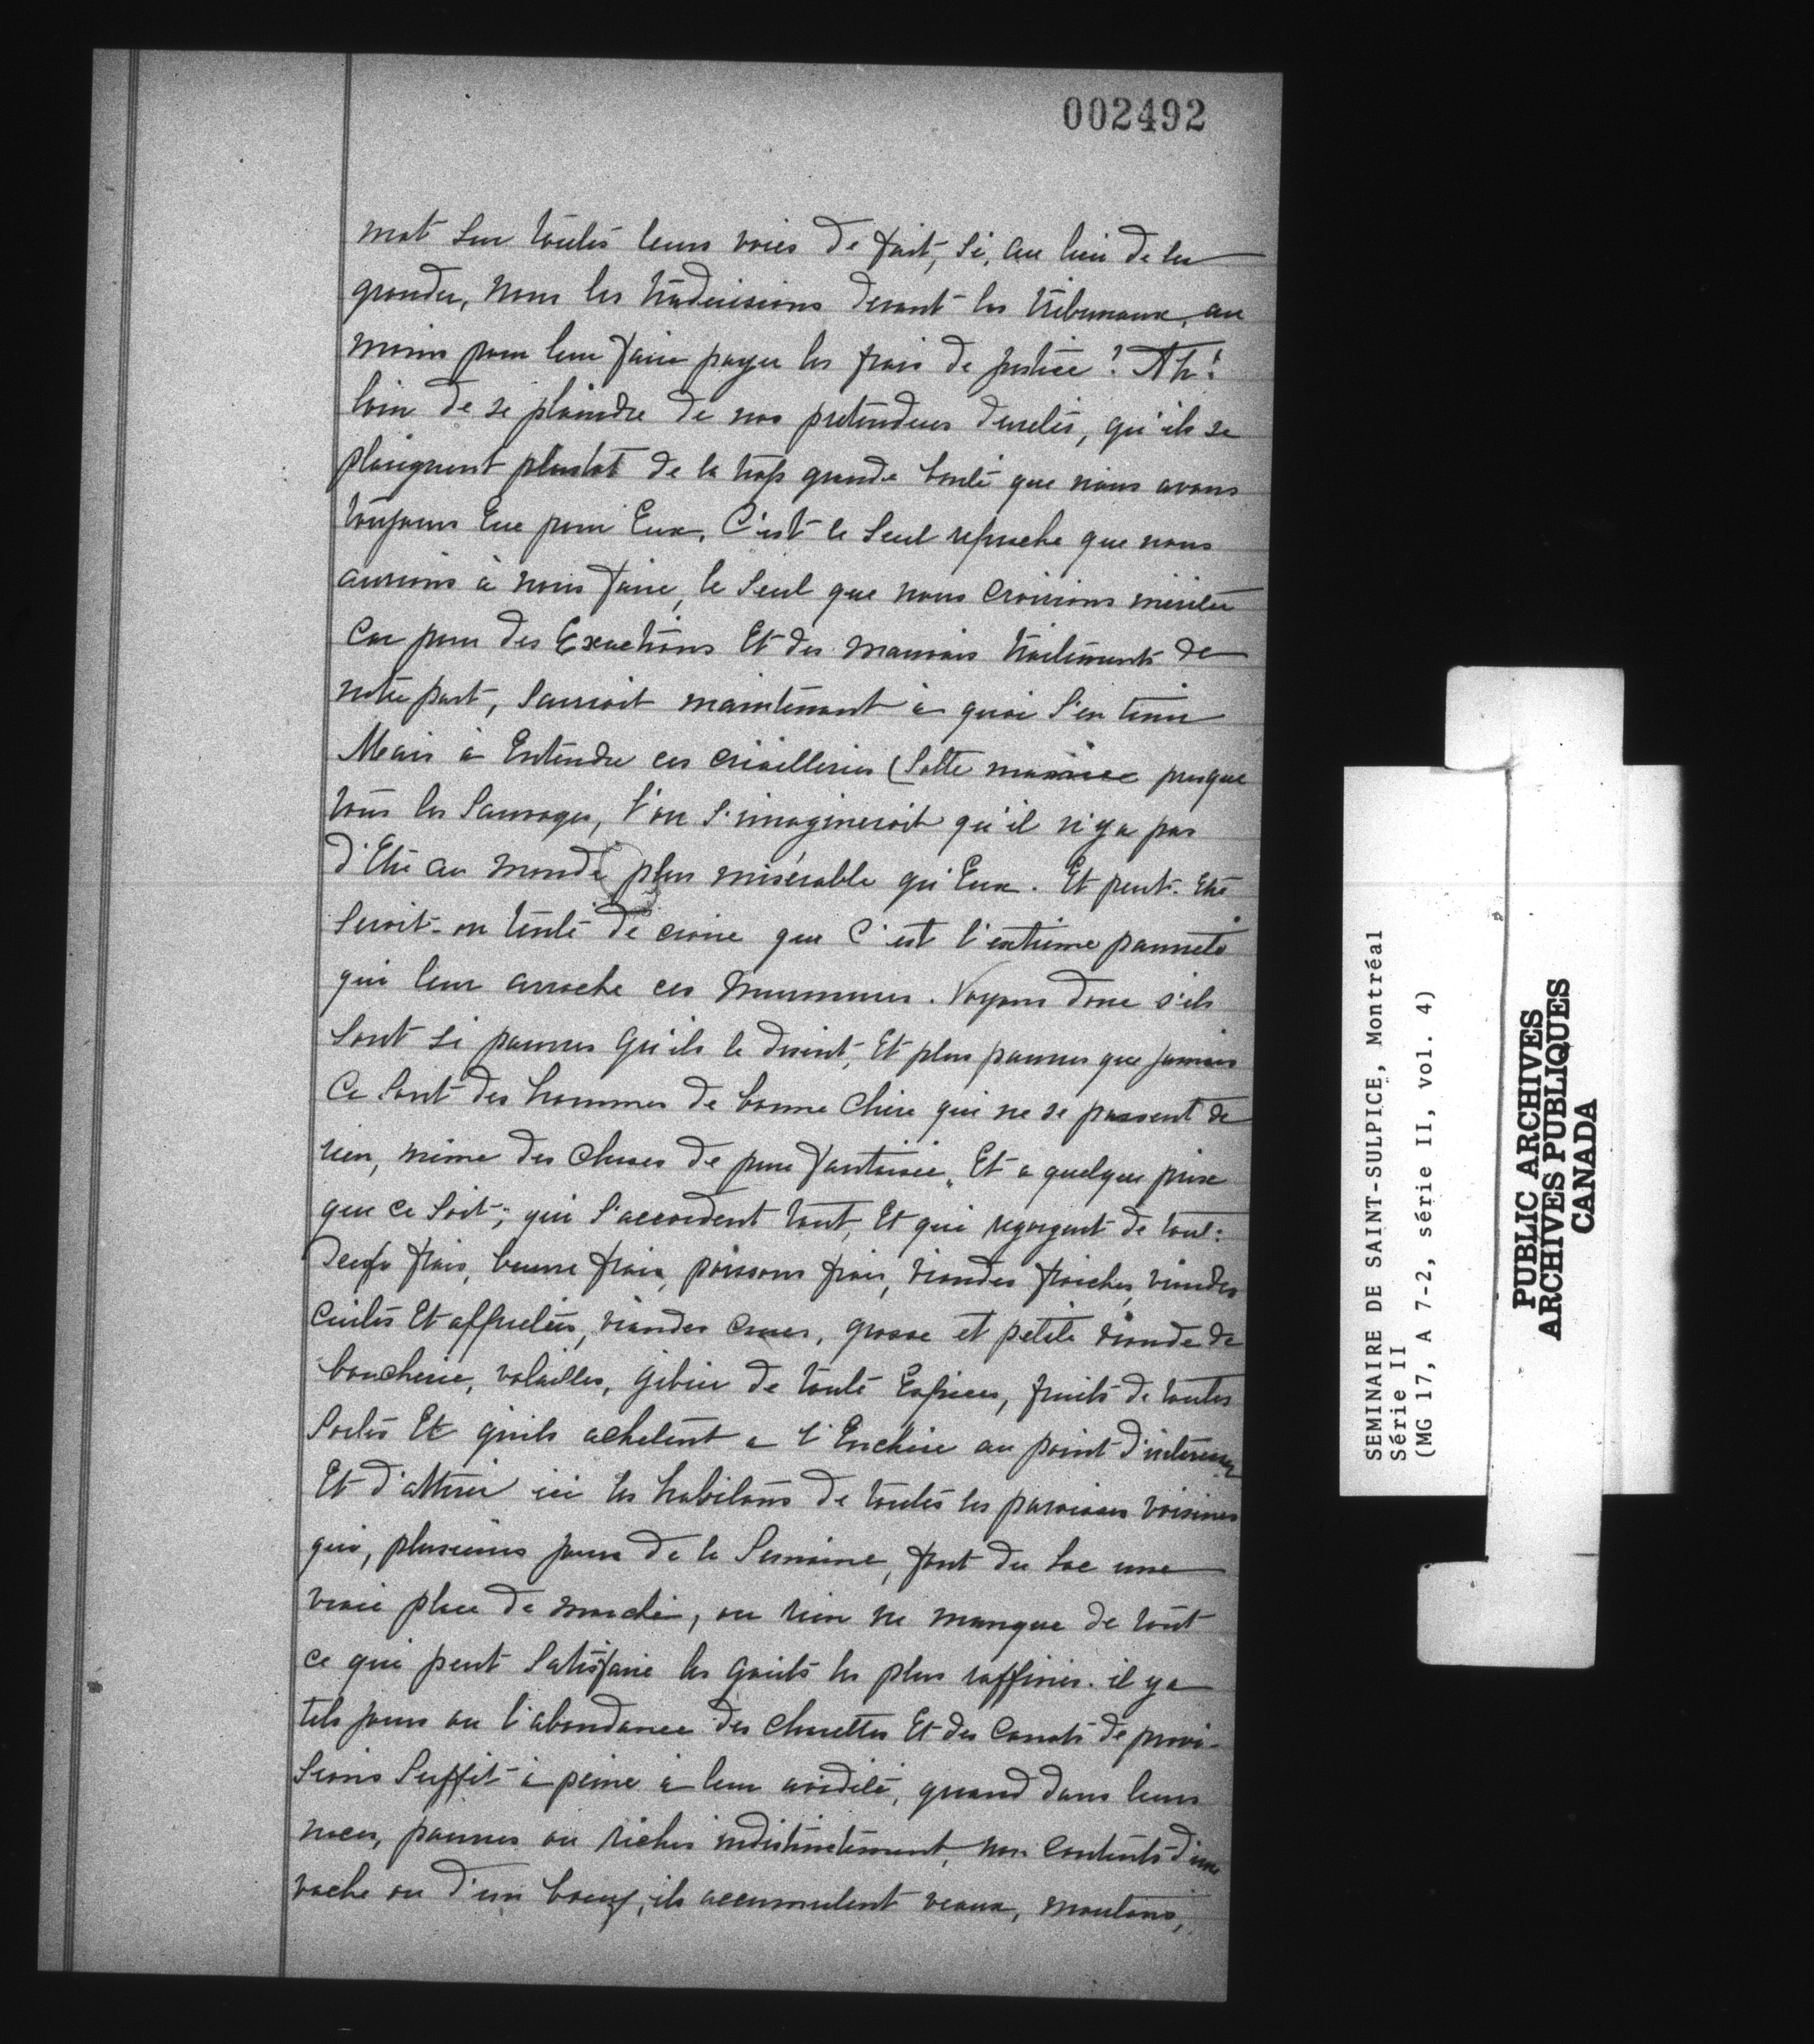 002492
mot sur toutes leurs voies de fait, si, au lieu de les
gronder, nous les traduisions devant les tribunaux, au
moins pour leur faire payer les frais de justice? Ah!
loin de se plaindre de nos prétendues duretés, qu'ils se
plaignent plustot de la trop grande bonté que nous avons
toujours Eue pour Eux. C'est le seul reproche que nous
aurions à nous faire, le seul que nous croirions mériter
Car pour des Exactions Et des mauvais traitements de
notre part, sauroit maintenant à quoi s'en tenir
Mais à Entendre ces criailleries (sotte manie presque
tous les Sauvages, l'on s'imagineroit qu'il n'y a pas
d'Etre au monde plus misérable qu'Eux. Et peut-Etre
seroit-on tenté de croire que C'est l'extrême pauvreté
qui leur arrache ces murmures. Voyons donc s'ils
sont si pauvres qu'ils le disent, Et plus pauvres que jamais
Ce sont des hommes de bonne chère qui ne se passent de
rien, même des choses de pure fantaisie, Et a quelque prix
que ce soit; qui s'accordent tout, Et qui regorgent de tout:
Oeufs frais, beurre frais, poissons frais, viandes fraiches, viandes
cuites Et apprêtées, viandes crues, grosse et petite viande de
boucherie, volailles, gibier de toute Espèces, fruits de toutes
sortes Et qu'ils achètent a l'Enchère au point d'intéresser
Et d'attirer ici les habitans de toutes les paroisses voisines
qui, plusieurs jours de la Semaine, font du Lac une
vraie place de marché, ou rien ne manque de tout
ce qui peut satisfaire les goûts les plus raffinés. il y a
tels jours ou l'abondance des charettes Et des Canots de provi-
sions suffit à peine à leur avidité, quand dans leurs
noces, pauvres ou riches indistinctement, non contents d'une
vache ou d'un boeuf, ils accumulent veaux, moutons,
SEMINAIRE DE SAINT-SULPICE, Montréal
Série II
(MG 17, A 7-2, série II, vol. 4)
PUBLIC ARCHIVES
ARCHIVES PUBLIQUES
CANADA